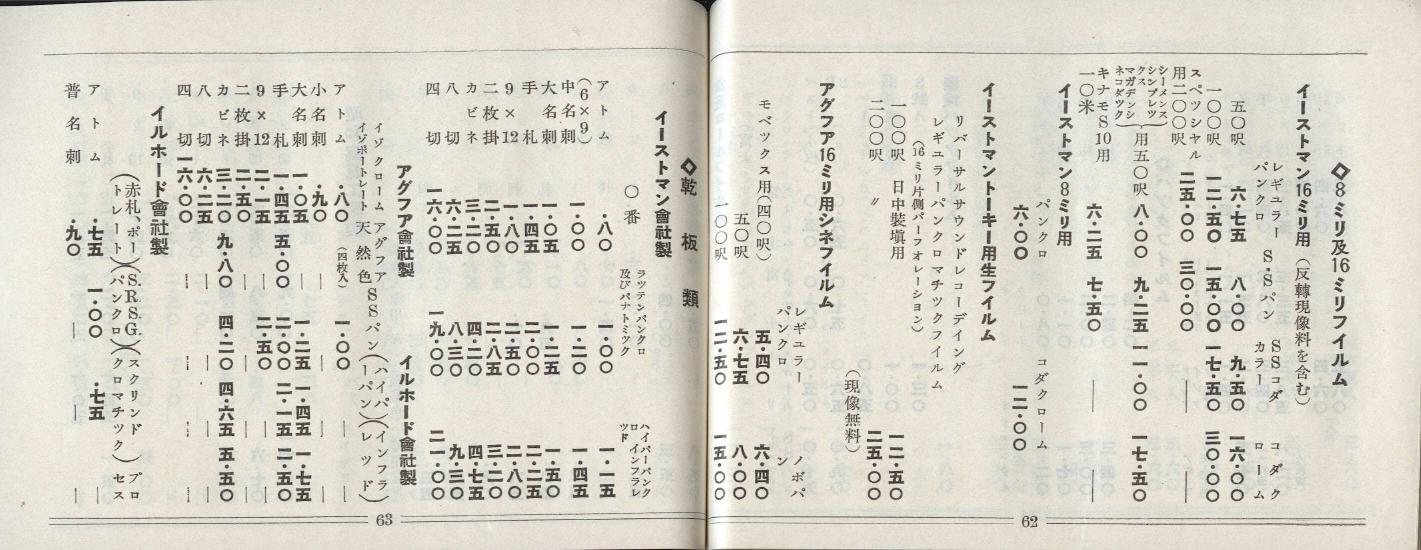 ◇8ミリ及16ミリフイルム
イーストマン16ミリ用（反轉現像料を含む）
レギュラー パンクロ S.Sパン SSコダカラー コダクローム
五〇呎 六・七五 八・〇〇 九・五〇 一六・〇〇
一〇〇呎 一二・五〇 一五・〇〇 一七・五〇 三〇・〇〇
スペツシヤル用二〇〇呎 二五・〇〇 三〇・〇〇 ― ―
シーメンス シンプレツクス マガデンシネコダツク 用五〇呎 八・〇〇 九・二五 一一・〇〇 一七・五〇
キナモS10用一〇米 六・二五 七・五〇 ― ―
イーストマン8ミリ用
パンクロ コダクローム
六・〇〇 一二・〇〇
イーストマントーキー用生フイルム
リバーサルサウンドレコーデイング
レギュラーパンクロマチツクフイルム
（16ミリ片側パーフオレーシヨン）
一〇〇呎 日中裝塡用 一二・五〇
二〇〇呎 〃 二五・〇〇
（現像無料）
アグフア16ミリ用シネフイルム
レギュラー パンクロ ノボパン
モベックス用（四〇呎） 五・四〇 六・四〇
五〇呎 六・七五 八・〇〇
一〇〇呎 一二・五〇 一五・〇〇
62
◇乾板類
イーストマン會社製
〇番 ラツテンパンクロ及びパナトミツク ハイパーパンクロ インフラレツド
アトム ・八〇 一・〇〇 一・一五
中名刺（6×9） 一・〇〇 一・二〇 一・四五
大名刺 一・〇五 一・二五 一・五〇
手札 一・四五 二・〇〇 二・二〇
9×12 一・八〇 二・五〇 二・八〇
二枚掛 二・五〇 二・八五 三・二〇
カビネ 三・二〇 四・二〇 四・七五
八切 六・二五 八・三〇 九・三〇
四切 一六・〇〇 一九・〇〇 二一・〇〇
アグフア會社製 イルホード會社製
イソクローム イソポートレート アグフア天然色 SSパン（ハイパーパン）（インフラレツド）
アトム ・八〇 （四枚入） 一・〇〇 ― ―
小名刺 ・九〇 ― ― ― ―
大名刺 一・〇五 ― 一・二五 一・四五 一・七五
手札 一・四五 五・〇〇 二・〇〇 二・一五 二・五〇
9×12 二・一五 ― 二・五〇 ― ―
二枚掛 二・五〇 ― ― ― ―
カビネ 三・二〇 九・八〇 四・二〇 四・六五 五・五〇
八切 六・二五 ― ― ― ―
四切 一六・〇〇 ― ― ― ―
イルホード會社製
（赤札、ポートレート）（S.R.S.G.パンクロ）（スクリンド クロマチツク）プロセス
アトム ・七五 一・〇〇 ・七五 ―
普名刺 ・九〇 ― ― ―
63